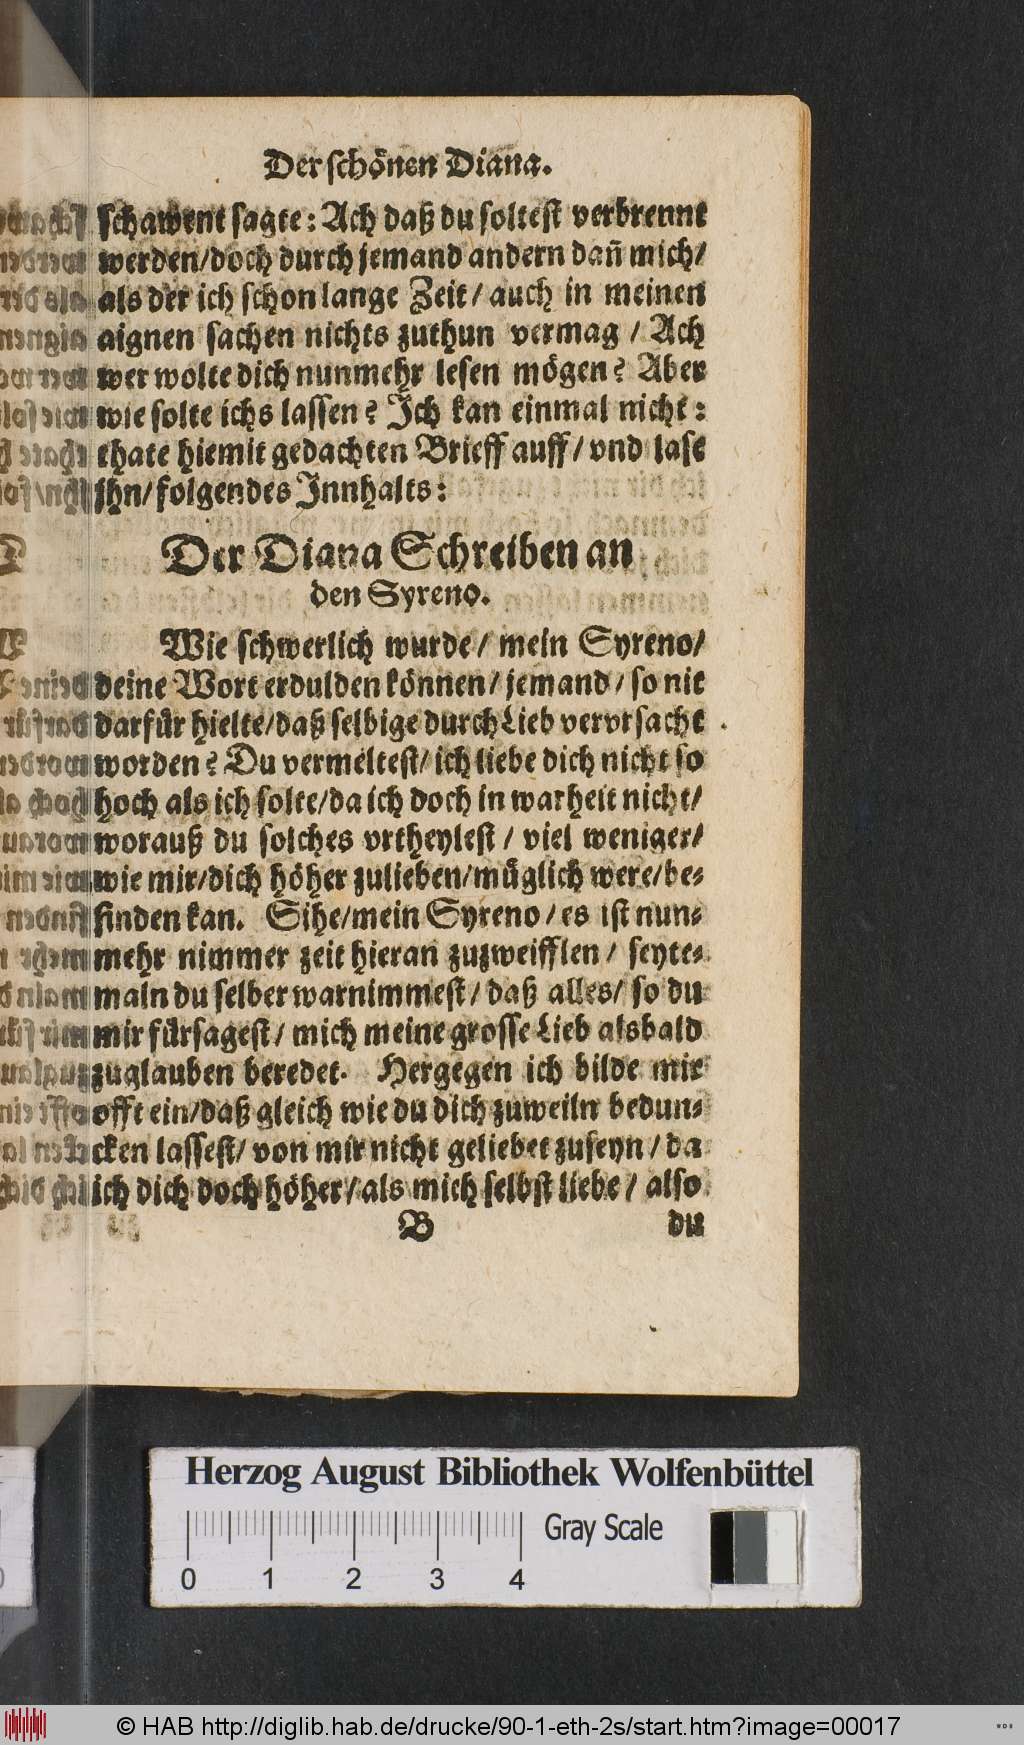 Der schönen Diana.
schawent sagte: Ach daß du soltest verbrennt
werden/doch durch jemand andern dañ mich/
als der ich schon lange Zeit/ auch in meinen
aignen sachen nichts zuthun vermag / Ach
wer wolte dich nunmehr lesen mögen? Aber
wie solte ichs lassen? Ich kan einmal nicht:
thate hiemit gedachten Brieff auff/ vnd lase
jhn/ folgendes Innhalts:
Der Diana Schreiben an
den Syreno.
Wie schwerlich wurde/ mein Syreno/
deine Wort erdulden können/ jemand/ so nit
darfür hielte/daß selbige durch Lieb vervrsacht
worden? Du vermeltest/ ich liebe dich nicht so
hoch als ich solte/da ich doch in warheit nicht/
worauß du solches vrtheylest/ viel weniger/
wie mir/dich höher zulieben/müglich were/be-
finden kan. Sihe/mein Syreno/ es ist nun-
mehr nimmer zeit hieran zuzweifflen/ seyte-
maln du selber warnimmest/ daß alles/ so du
mir fürsagest/ mich meine grosse Lieb alsbald
zuglauben beredet. Hergegen ich bilde mir
offt ein/daß gleich wie du dich zuweiln bedun-
cken lassest/ von mir nicht geliebet zuseyn/ da
ich dich doch höher/als mich selbst liebe/ also
B du
Herzog August Bibliothek Wolfenbüttel
Gray Scale
0 1 2 3 4
© HAB http://diglib.hab.de/drucke/90-1-eth-2s/start.htm?image=00017